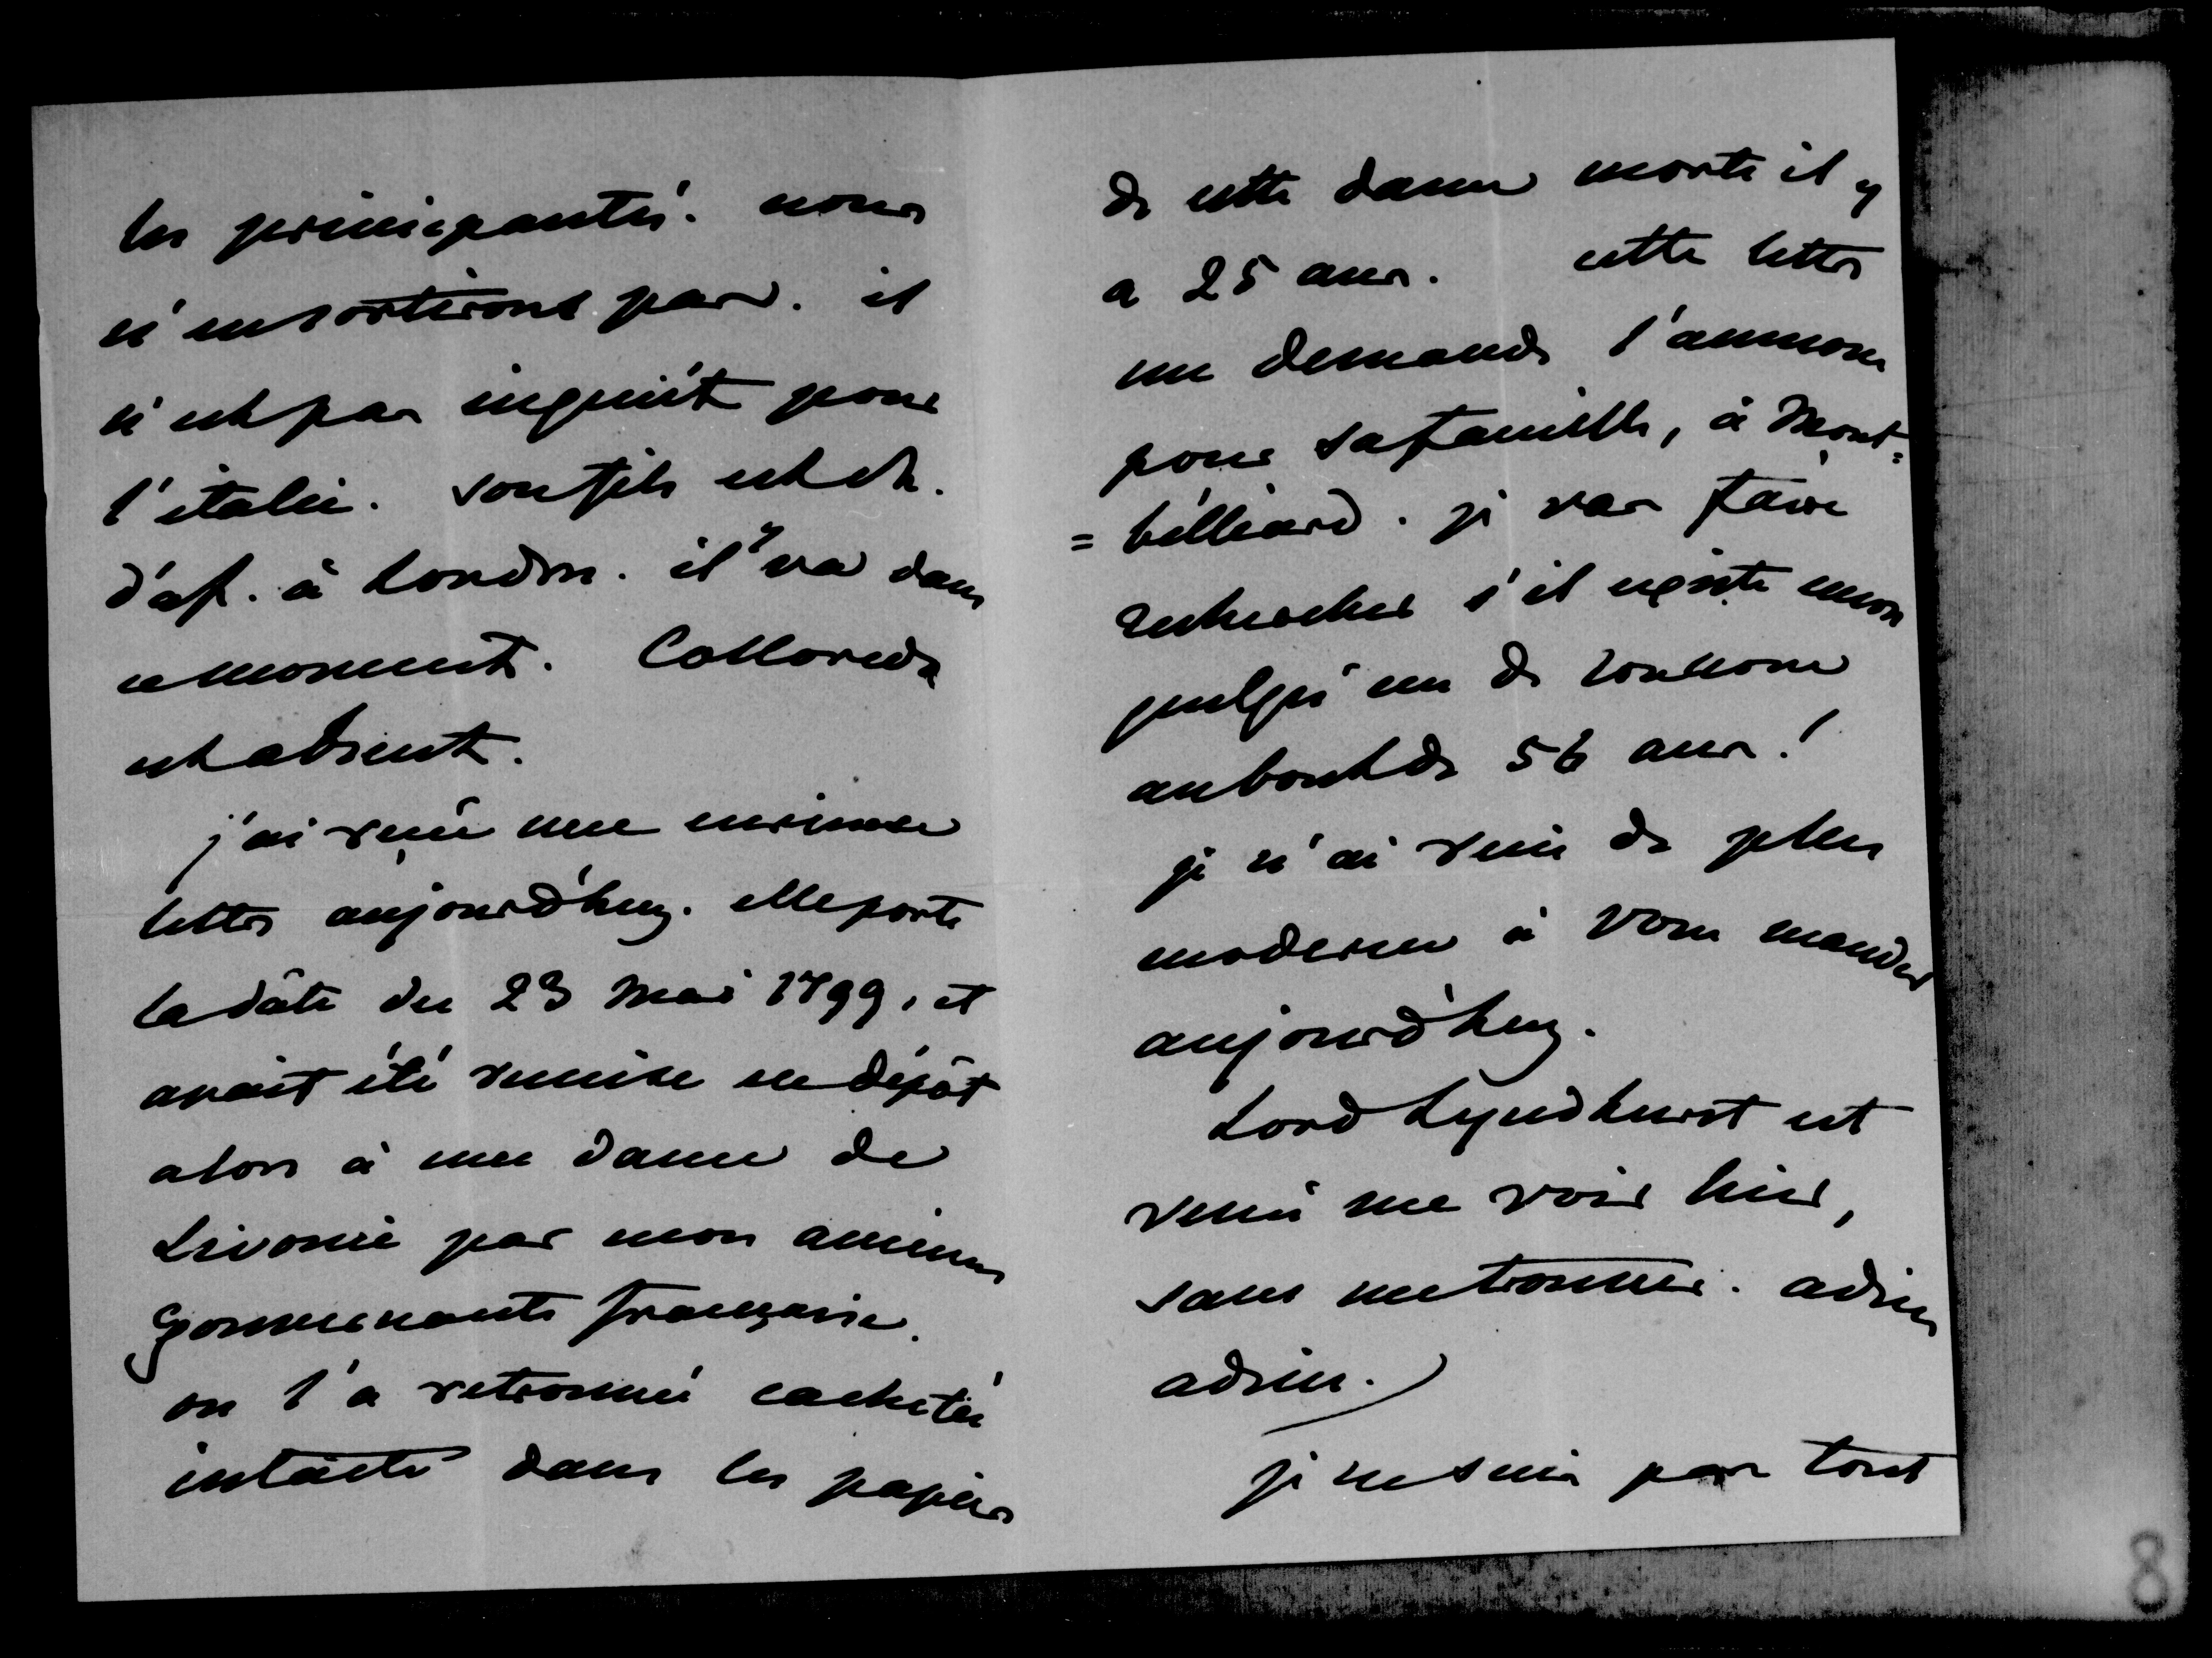 les principautés. nous
n'en sortirons pas. il
n'est pas inquiét pour
l'italie. son fils est ch.
d'af. à Londres. il y va dans
ce moment. Colloredo
est absent.
j'ai reçu une curieuse
lettre aujourd'huy. elle porte
la date du 23 Mai 1799, et
avait été remise en dépôt
alors à une dame de
Livonie par mon ancienne
gouvernante française.
on l'a retrouvée cachetée
intacte dans les papiers
de cette dame morte il y
a 25 ans. cette lettre
me demande l'aumone
pour sa famille, à Mont=
=béliard. je vas faire
rechercher s'il existe encore
quelqu'un de son nom
au bout de 56 ans!
je n'ai rien de plus
moderne à vous mander
aujourd'huy.
Lord Lyndhurst est
venu me voir hier,
sans me trouver. adieu
adieu.
je ne suis pas tout
8